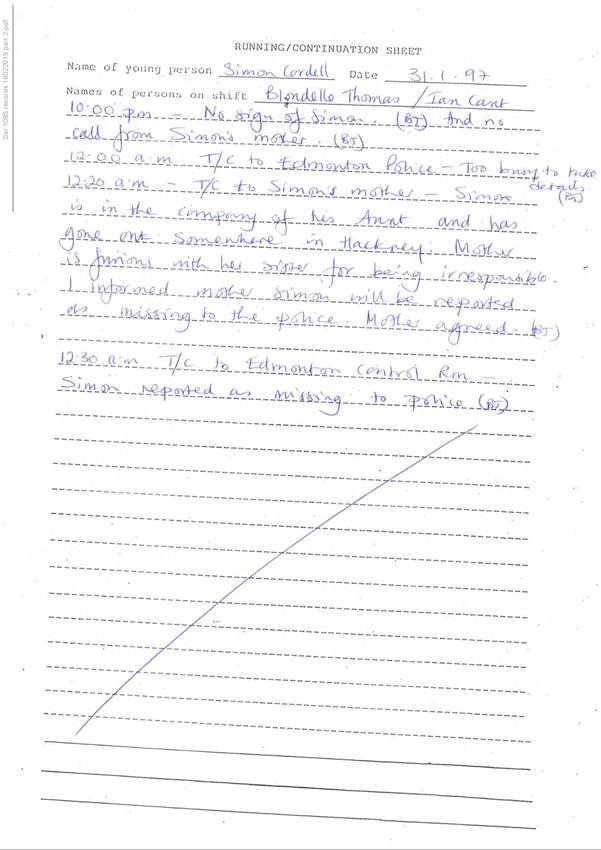 Sar 1085 records 16022019 part 2.pdf
RUNNING/CONTINUATION SHEET
Name of young person Simon Cordell Date 31.1.97
Names of persons on shift Blondelle Thomas / Ian Cant
10:00 pm – No sign of Simon. (BT) And no
call from Simon's mother. (BT)
12:00 a.m T/C to Edmonton Police – Too busy to take
details (BT)
12:20 a.m – T/C to Simon's mother – Simon
is in the company of his Aunt and has
gone out somewhere in Hackney. Mother
is furious with her sister for being irresponsible.
I informed mother Simon will be reported
as missing to the police. Mother agreed. (BT)
12:30 a.m T/C to Edmonton Control Rm –
Simon reported as missing to police (BT)